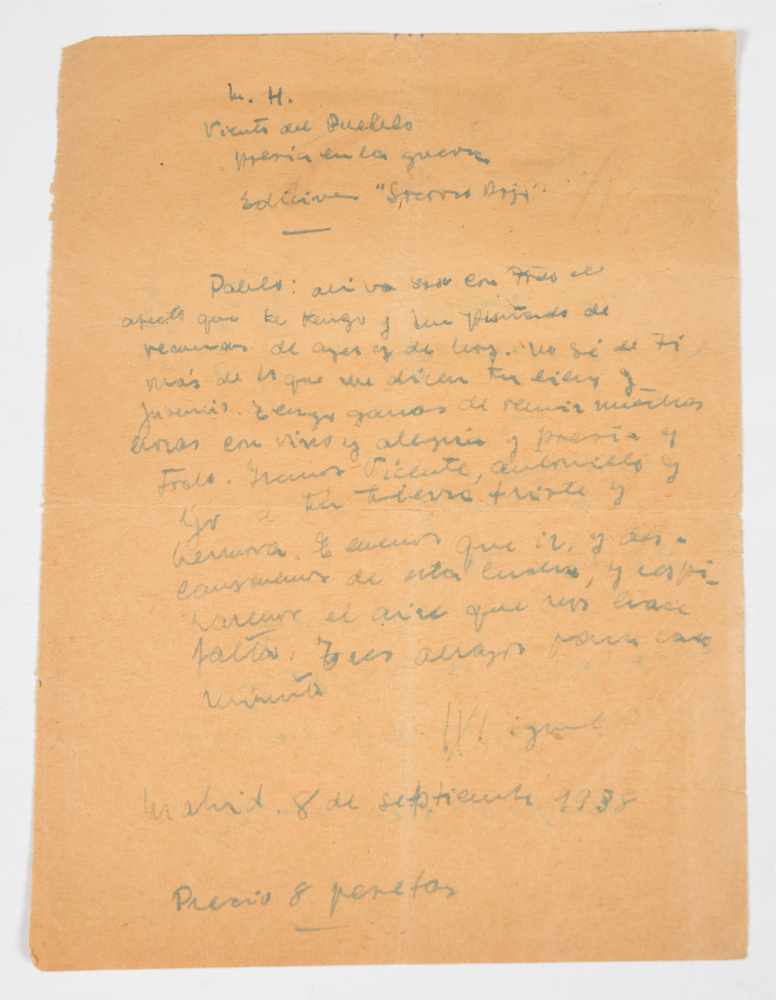 M. H.
Viento del Pueblo
poesía en la guerra
Ediciones "Socorro Rojo".
Pablo: ahí va eso con todo el
afecto que te tengo y un puñado de
recuerdos de ayer y de hoy. No sé de ti
más de lo que me dicen tu libro y
Tengo ganas de reunir muchas
horas con vino y alegría y poesía y
todo. Iremos Vicente, Antonillo y
yo a tu taberna triste y
hermosa. Tenemos que ir, y des-
cansaremos de esta lucha, y respi-
raremos el aire que nos hace
falta. Tres abrazos para cada
minuto
Miguel
Madrid. 8 de septiembre 1938
Precio 8 pesetas